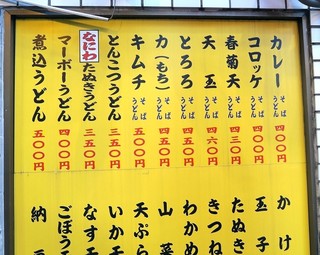 カレー そば うどん 四〇〇円
コロッケ そば うどん 四〇〇円
春菊天 そば うどん 四三〇円
天玉 そば うどん 四六〇円
とろろ そば うどん 四五〇円
力(もち) そば うどん 四五〇円
キムチ そば うどん 四五〇円
とんこつうどん 四五〇円
なにわたぬきうどん 三五〇円
マーボーうどん 四〇〇円
煮込うどん 五〇〇円
かけ
玉子
たぬき
きつね
わかめ
山菜
天ぷら
いか天
なす天
ごぼう
納